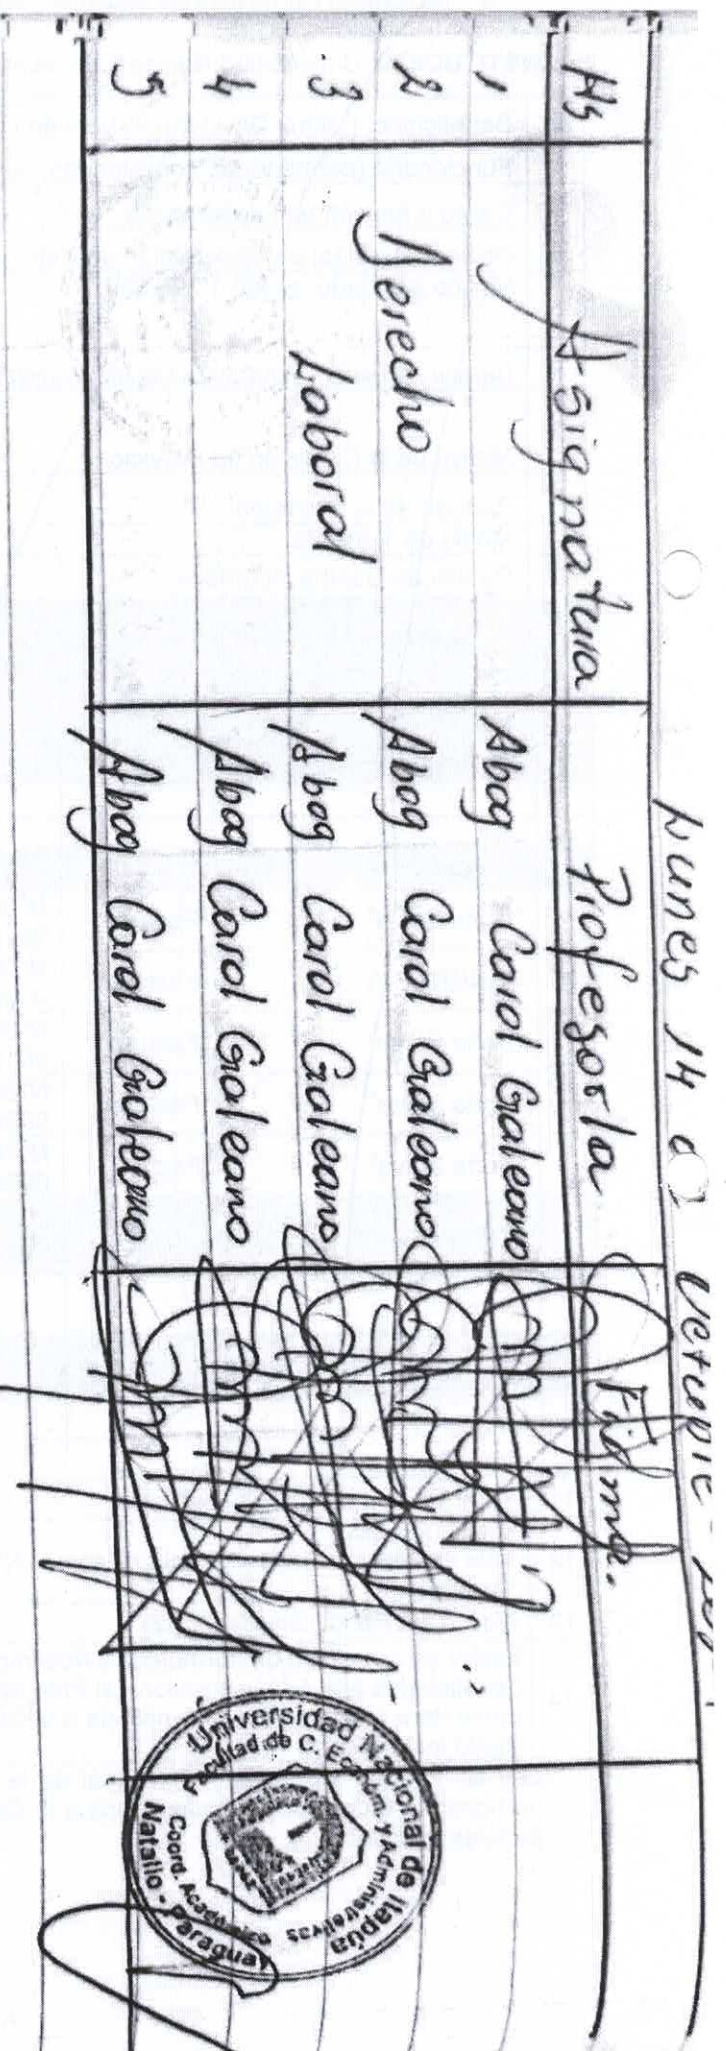 Lunes 14 de octubre
Hs Asignatura Profesor/a Firma.
1 Abog Carol Galeano
2 Derecho Abog Carol Galeano
3 Laboral Abog Carol Galeano
4 Abog Carol Galeano
5 Abog Carol Galeano
Universidad Nacional de Itapúa
Facultad de C. Económ. y Administrativas
Coord. Académica
Natalio - Paraguay